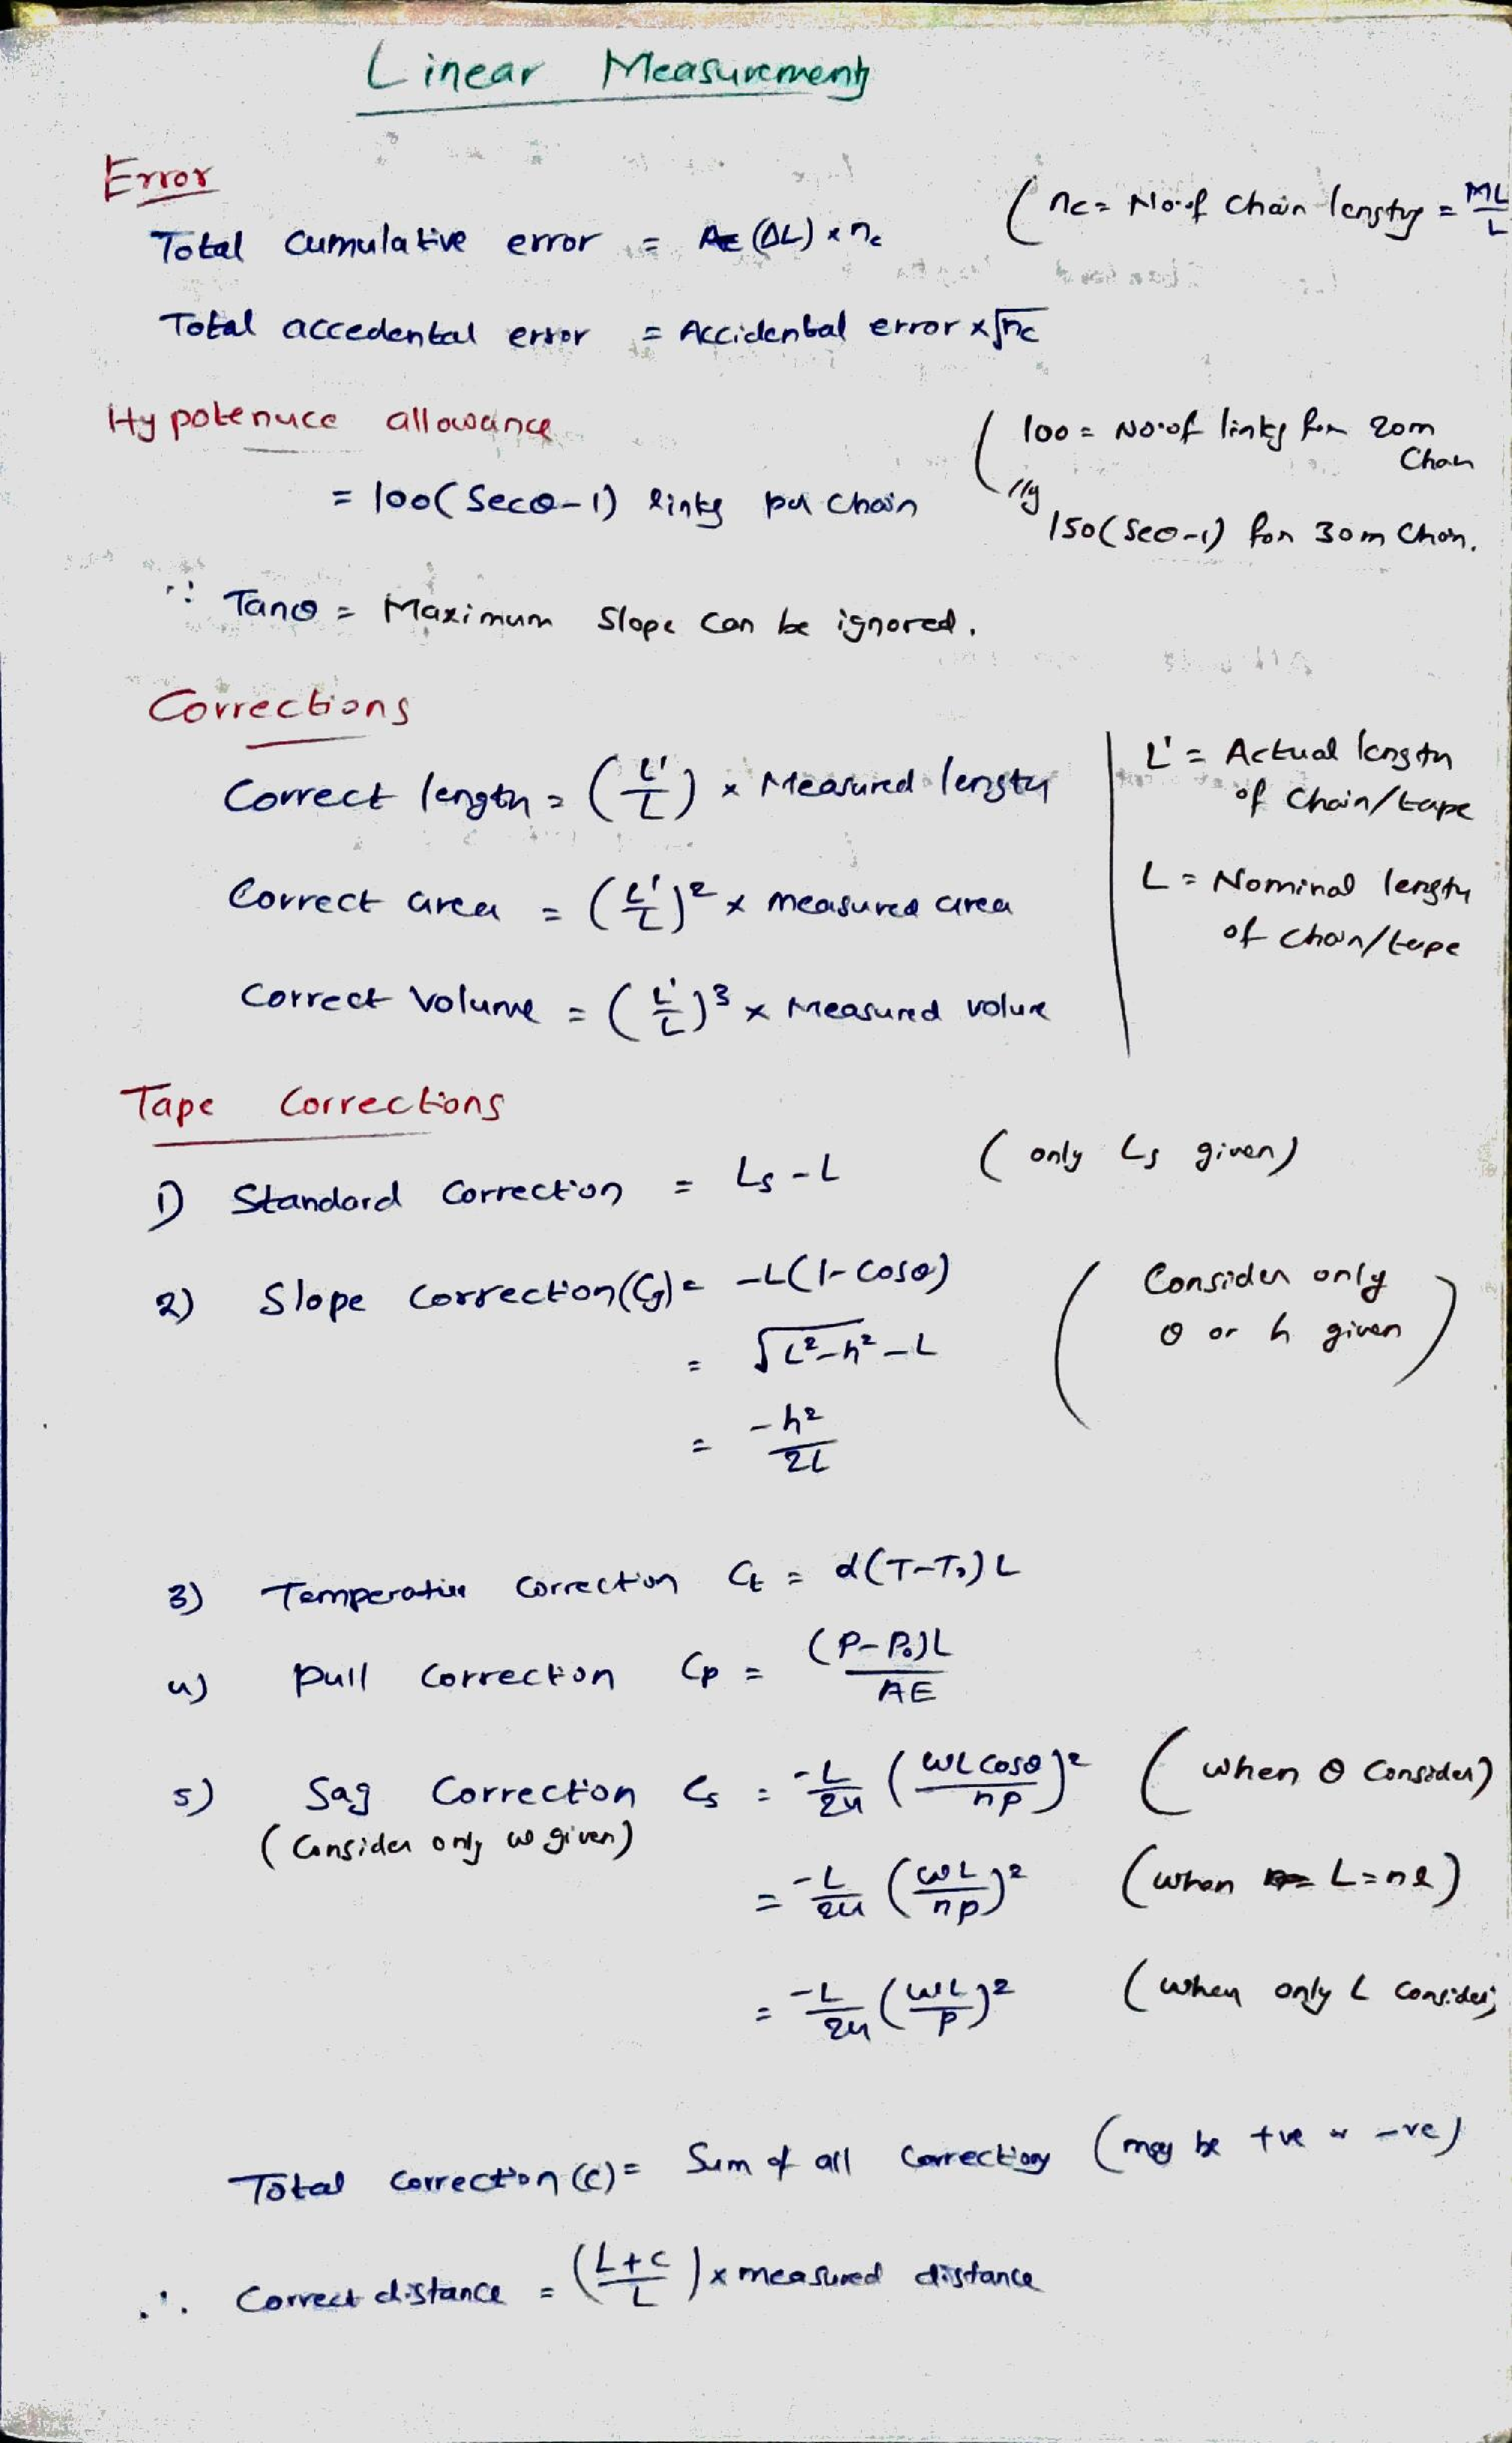 Linear Measurements
Error
Total Cumulative error = (ΔL) × nc (nc = No.of Chain lengths = ML/L
Total accedental error = Accidental error × √nc
Hypotenuce allowance
= 100(Secθ-1) links per chain (100 = No.of links for 20m Chain
lly 150(Secθ-1) for 30m Chain.
∵ Tanθ = Maximum Slope can be ignored.
Corrections
Correct length = (L'/L) × Measured length
L' = Actual length of Chain/tape
Correct area = (L'/L)² × measured area
L = Nominal length of chain/tape
Correct Volume = (L'/L)³ × Measured volume
Tape Corrections
1) Standard Correction = Ls - L (only Ls given)
2) Slope Correction(Cg) = -L(1-Cosθ) (Consider only θ or h given)
= √L²-h² - L
= -h²/2L
3) Temperature Correction Ct = α(T-T₀)L
4) Pull Correction Cp = (P-P₀)L/AE
5) Sag Correction Cs = -L/24 (WLCosθ/np)² (when θ Consider)
(Consider only ω given)
= -L/24 (ωL/np)² (when L=nl)
= -L/24 (WL/P)² (when only L Consider)
Total Correction (C) = Sum of all Corrections (may be +ve or -ve)
∴ Correct distance = (L+C/L) × measured distance